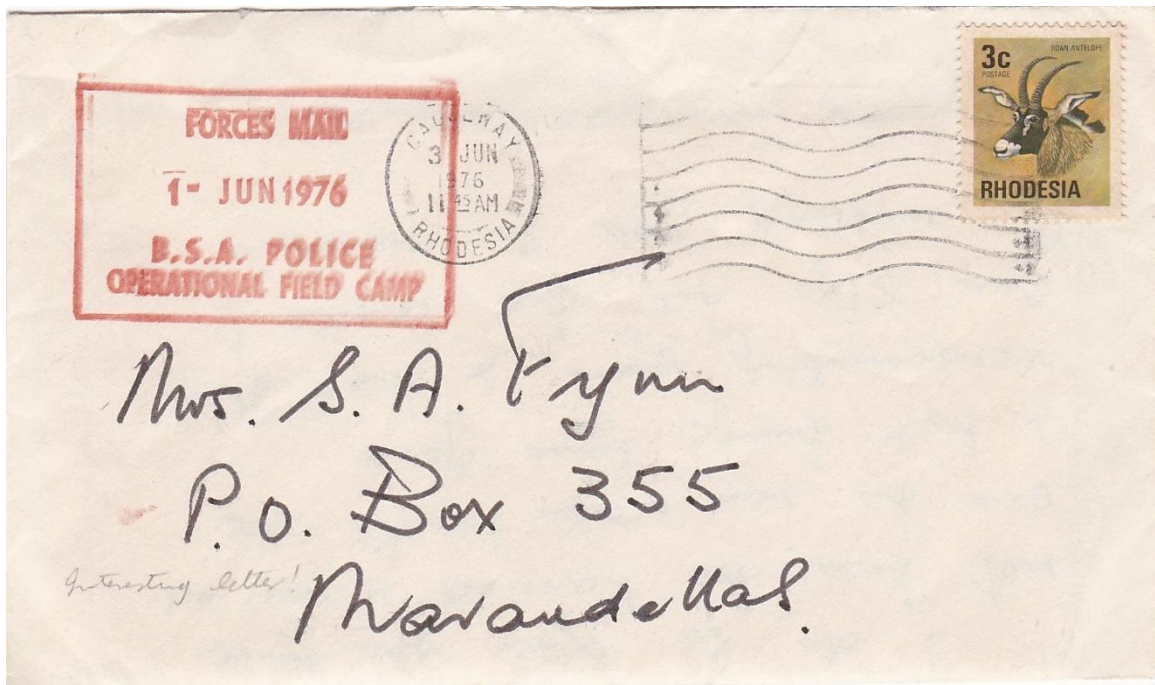 FORCES MAIL
1- JUN 1976
B.S.A. POLICE
OPERATIONAL FIELD CAMP
CAUSEWAY
3 JUN
1976
11 45 AM
RHODESIA
3c
POSTAGE
ROAN ANTELOPE
RHODESIA
Mrs. S. A. Fynn
P.O. Box 355
Marandellas.
Interesting letter!